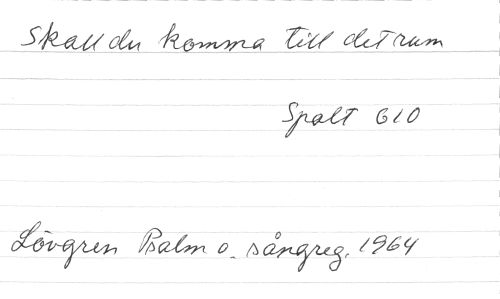 Skall du komma till det rum
Spalt 610
Lövgren Psalm o. sångreg. 1964